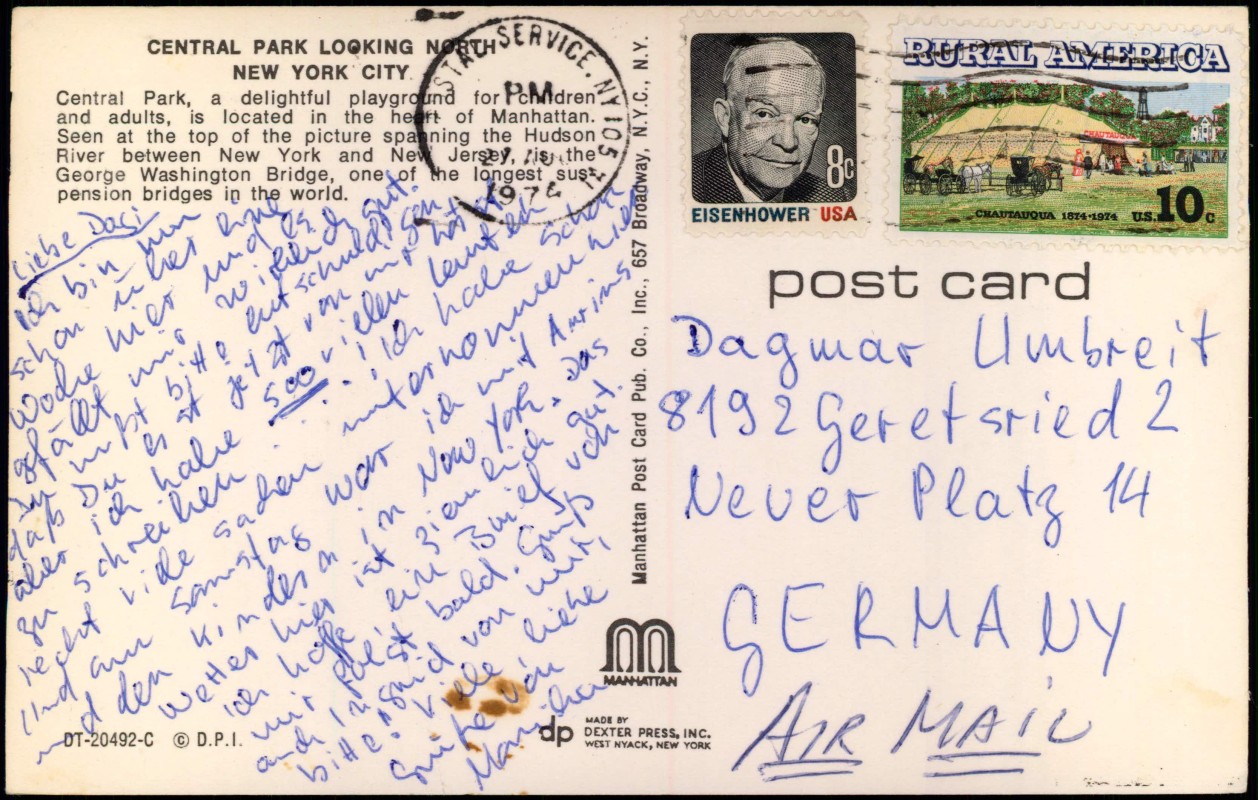 CENTRAL PARK LOOKING NORTH
NEW YORK CITY
Central Park, a delightful playground for children
and adults, is located in the heart of Manhattan.
Seen at the top of the picture spanning the Hudson
River between New York and New Jersey, is the
George Washington Bridge, one of the longest sus-
pension bridges in the world.
Liebe Dagi
ich bin nun
schon über eine
Woche hier und es
gefällt mir wirklich gut.
Du mußt bitte entschuldigen
daß Du jetzt von mir hörst
aber ich habe sooo vielen Leuten
zu schreiben ... ich habe schon
recht viele sachen unternommen hier
Und am Samstag war ich mit
und den Kindern in New York. Das
Wetter hier ist ziemlich gut.
ich hoffe ein Brief von
mir folgt bald. Grüß
auch Ingrid von mir,
bitte. Viele liebe
Grüße von
DT-20492-C © D.P.I.
Manhattan Post Card Pub. Co., Inc., 657 Broadway, N.Y.C., N.Y.
MANHATTAN
dp
MADE BY
DEXTER PRESS, INC.
WEST NYACK, NEW YORK
STAL SERVICE, NY 105
PM
1974
EISENHOWER USA
8c
RURAL AMERICA
CHAUTAUQUA
CHAUTAUQUA 1874-1974 U.S. 10c
post card
Dagmar Umbreit
8192 Geretsried 2
Neuer Platz 14
GERMANY
AIR MAIL